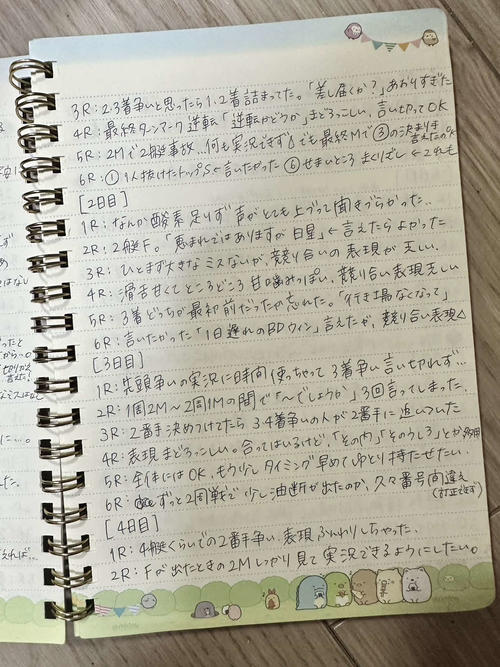 3R：2.3着争いと思ったら1.2着詰まってた。「差し届くか？」あおりすぎた
4R：最終ターンマーク逆転「逆転かどうか」まどろっこしい、言いきってOK
5R：2Mで2艇事故、何も実況できず でも最終Mで③の決まり手言えたのOK
6R：①1人抜けたトップS←言いたかった ⑥せまいところまくりざし←これも
[2日目]
1R：なんか酸素足りず声がとても上づって聞きづらかった..
2R：2艇F。「恵まれではありますが白星」←言えたらよかった
3R：ひとまず大きなミスないが、競り合いの表現が乏しい.
4R：滑舌甘くてところどころ甘噛みっぽい、競り合い表現乏しい
5R：3着どっちが最初前だったか忘れた。「行き場なくなって」
6R：言いたかった「1日遅れのBDウィン」言えたが、競り合い表現△
[3日目]
1R：先頭争いの実況に時間使っちゃって3着争い言い切れず…
2R：1周2M～2周1Mの間で「～でしょうか」3回言ってしまった.
3R：2番手決めつけてたら3.4着争いの人が2番手に近いていた
4R：表現まどろっこしい。合ってはいるけど、「その内」「そのうしろ」とか多用
5R：全体にはOK、もう少しタイミング早めてゆとり持たせたい.
6R：ずっと2周戦で少し油断が出たのか、久々番号間違え
(訂正できず)
[4日目]
1R：4艇くらいでの2番手争い、表現ふんわりしちゃった.
2R：Fが出たときの2Mしっかり見て実況できるようにしたい。